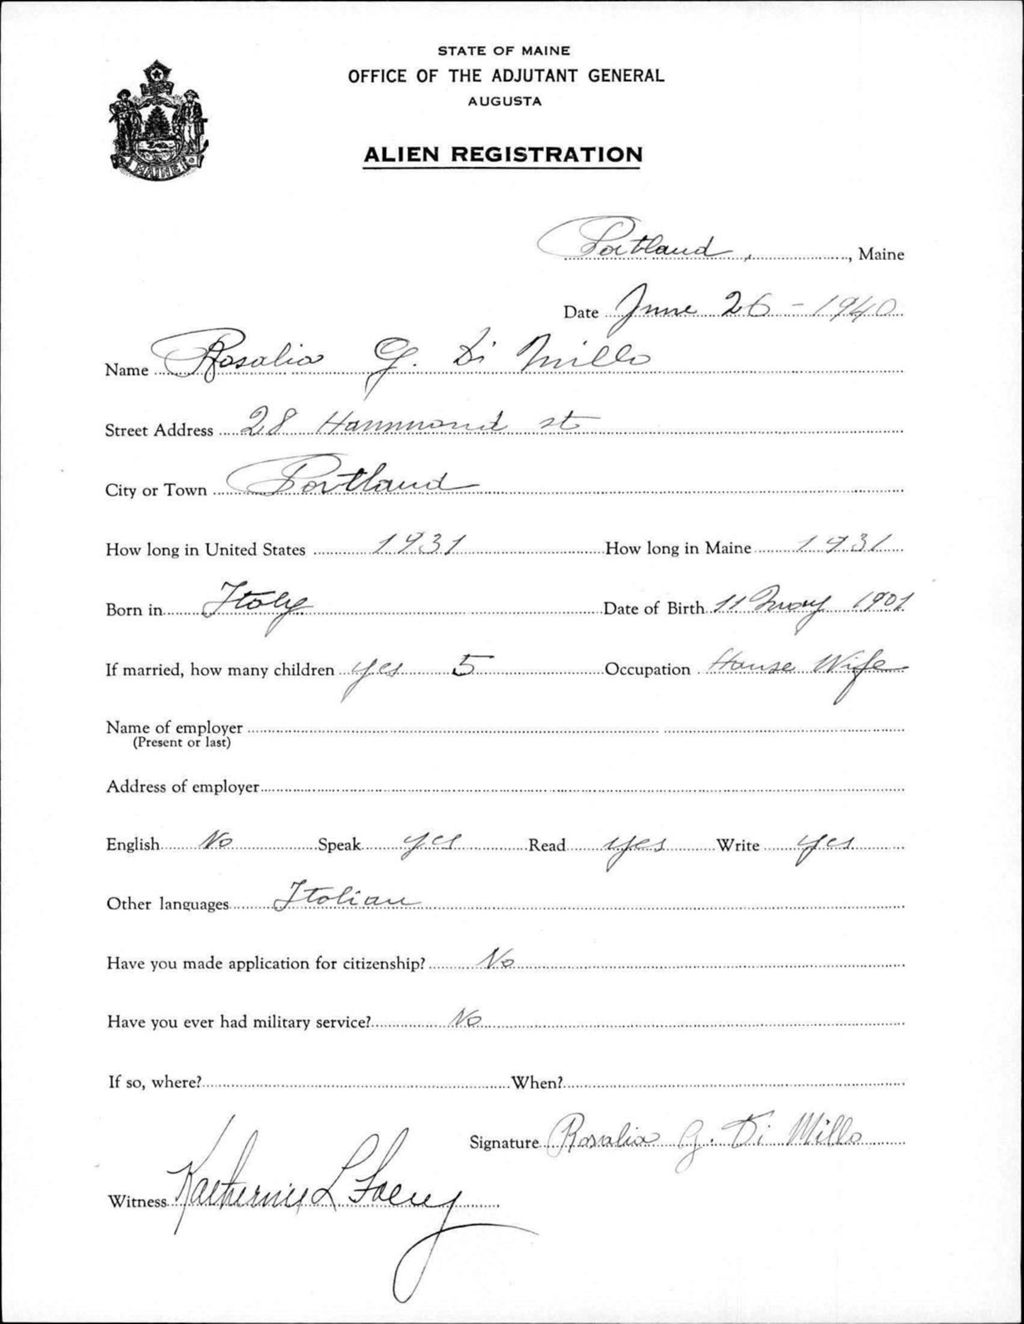 STATE OF MAINE
OFFICE OF THE ADJUTANT GENERAL
AUGUSTA
ALIEN REGISTRATION
Portland, Maine
Date June 26 - 1940
Name Rosalia G. Di Millo
Street Address 28 Hammond st
City or Town Portland
How long in United States 1931 How long in Maine 1931
Born in Italy Date of Birth 11 May 1901
If married, how many children yes 5 Occupation House Wife
Name of employer
(Present or last)
Address of employer
English No Speak yes Read yes Write yes
Other languages Italian
Have you made application for citizenship? No
Have you ever had military service? No
If so, where? When?
Signature Rosalia G. Di Millo
Witness Katherine L
MAINE